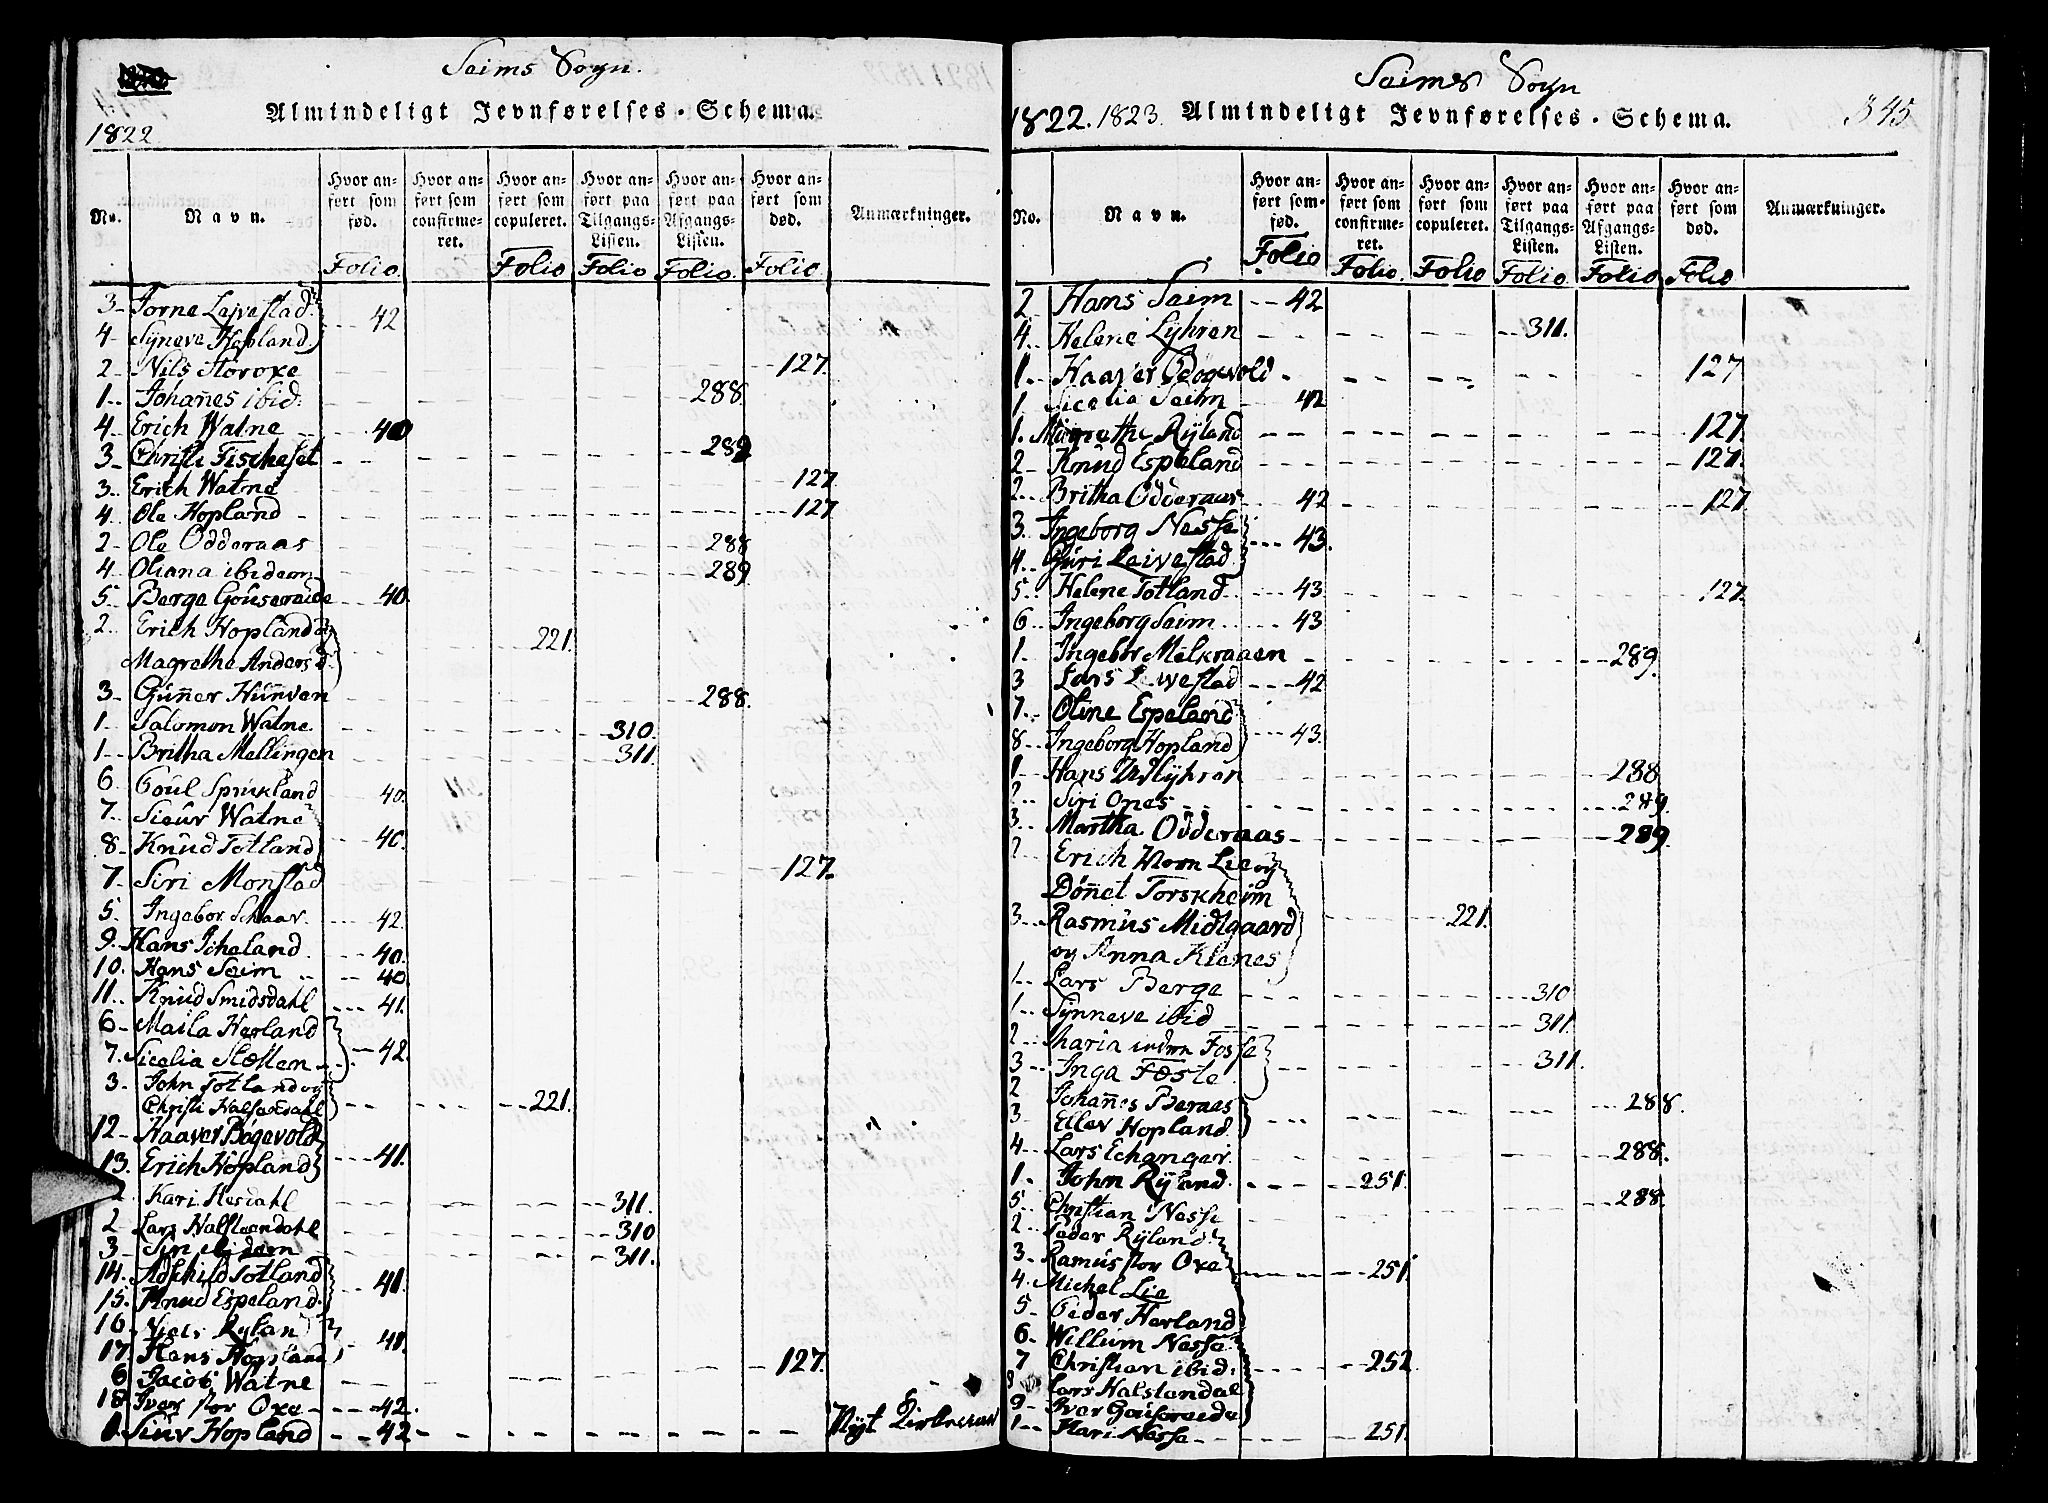 Seims Sogn.
Almindeligt Jevnførelses-Schema.
1822
No. Navn. Hvor anført som fød. Hvor anført som confirmeret. Hvor anført som copuleret. Hvor anført paa Tilgangs-Listen. Hvor anført paa Afgangs-Listen. Hvor anført som død. Anmærkninger.
Folio. Folio Folio Folio. Folio
3 Torne Leivestad
4 Synneve Hopland 42
2 Nils Storoxe 127.
1 Johañes ibid: 288.
4 Erich Watne 40
3 Christi Fiskeset 289
3 Erich Watne 127
4 Ole Hopland 127
2 Ole Odderaas 288
4 Oliana ibidem 289
5 Berge Gousereide 40.
2 Erich Hopland og
Magrethe Andersd. 221.
3 Guñer Hunven 288.
1 Salomon Watne 310.
1 Britha Mellingen 311.
6 Poul Sprukland 40.
7. Siour Watne
8 Knud Totland 40.
7. Siri Monstad 127.
5. Ingebor Schaar 42.
9. Hans Icheland 40.
10. Hans Seim 40.
11. Knud Smidsdahl 41.
6 Maila Herland
7. Sicelia Sletten 42.
3. John Totland og
Christi Halsændahl 221.
12 Haaver Bøgevold
13. Erich Hopland 41.
Kari Hesdahl 311.
2 Lars Halstændahl 310
3 Siri ibidem 311.
14. Adskild Totland
15. Knud Espeland. 41.
16. Niels Ryland
17. Hans Hopland 41.
6 Jacob Watne 127.
18 Iver stor Oxe 42.
1. Siur Hopland 42
Seims Sogn
1822. 1823. Almindeligt Jevnførelses-Schema. 345
No. Navn. Hvor anført som fød. Hvor anført som confirmeret. Hvor anført som copuleret. Hvor anført paa Tilgangs-Listen. Hvor anført paa Afgangs-Listen. Hvor anført som død. Anmærkninger.
Folio Folio. Folio Folio. Folio Folio
2 Hans Seim 42
4 Helene Lyhren 311.
1. Haaver Bøgevold 127
1 Sicelia Seim 42
1. Magrethe Ryland 127.
2 Knud Espeland 127.
2 Britha Odderaas 42 127
3. Ingeborg Nesse
4. Guri Leivestad 43.
5. Helene Totland 43 127.
6 Ingeborg Seim 43
1. Ingebor Melkraaen 289.
3 Lars Leivestad 42
7. Oline Espeland
8 Ingeborg Hopland 43.
1 Hans Lyhren 288
2 Siri Ones 289.
3. Martha Odderaas 289.
2 Erich Lie og
Dôñet Torskheim
3. Rasmus Midtgaard 221.
og Anna Klenes
1. Lars Berge 310
1. Synneve ibid 311.
2 Maria Fosse
3 Inga Foste 311.
2 Johañes Beraas 288.
3 Eller Hopland
4. Lars Echanger. 288.
1. John Ryland. 251.
5. Christian Nesse 288.
2 Peder Ryland
3 Ramus stor Oxe 251.
4. Michel Lie
5 Peder Herland
6 Willum Nesse
7 Christian ibid. 252
8 Lars Halstendal
9 Iver Gousereide
1. Kari Nesse 251.